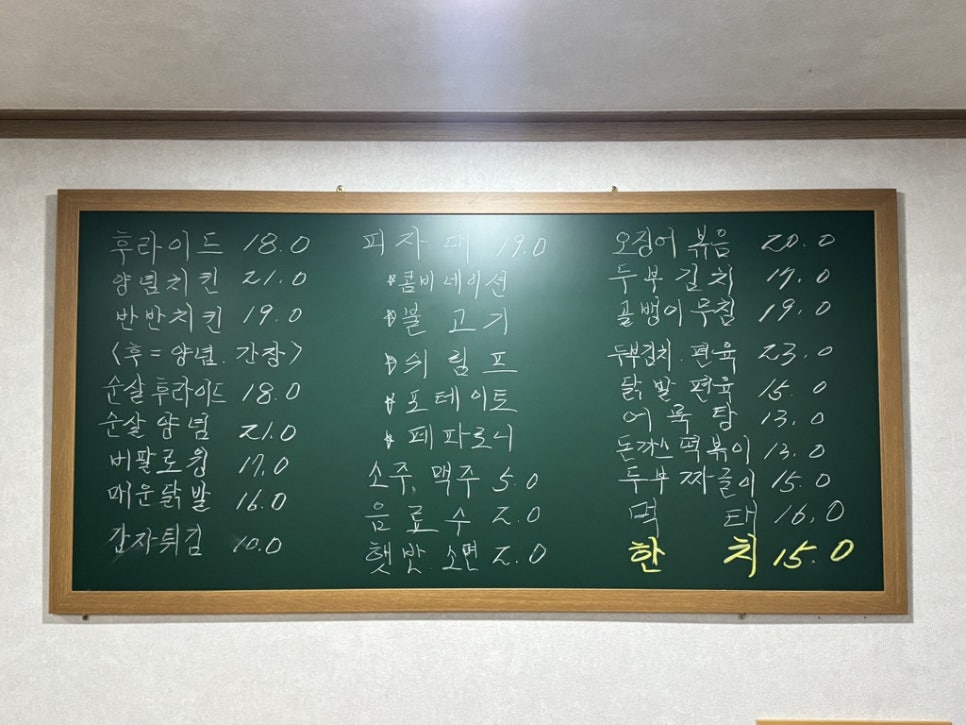 후라이드 18.0
양념치킨 21.0
반반치킨 19.0
<후=양념.간장>
순살후라이드 18.0
순살양념 21.0
버팔로윙 17.0
매운닭발 16.0
감자튀김 10.0
피자대 19.0
콤비네이션
불고기
쉬림프
포테이토
페파로니
소주, 맥주 5.0
음료수 2.0
햇반.소면 2.0
오징어볶음 20.0
두부김치 17.0
골뱅이무침 19.0
두부김치.편육 23.0
닭발편육 15.0
어묵탕 13.0
돈까스떡볶이 13.0
두부짜글이 15.0
먹태 16.0
한치 15.0